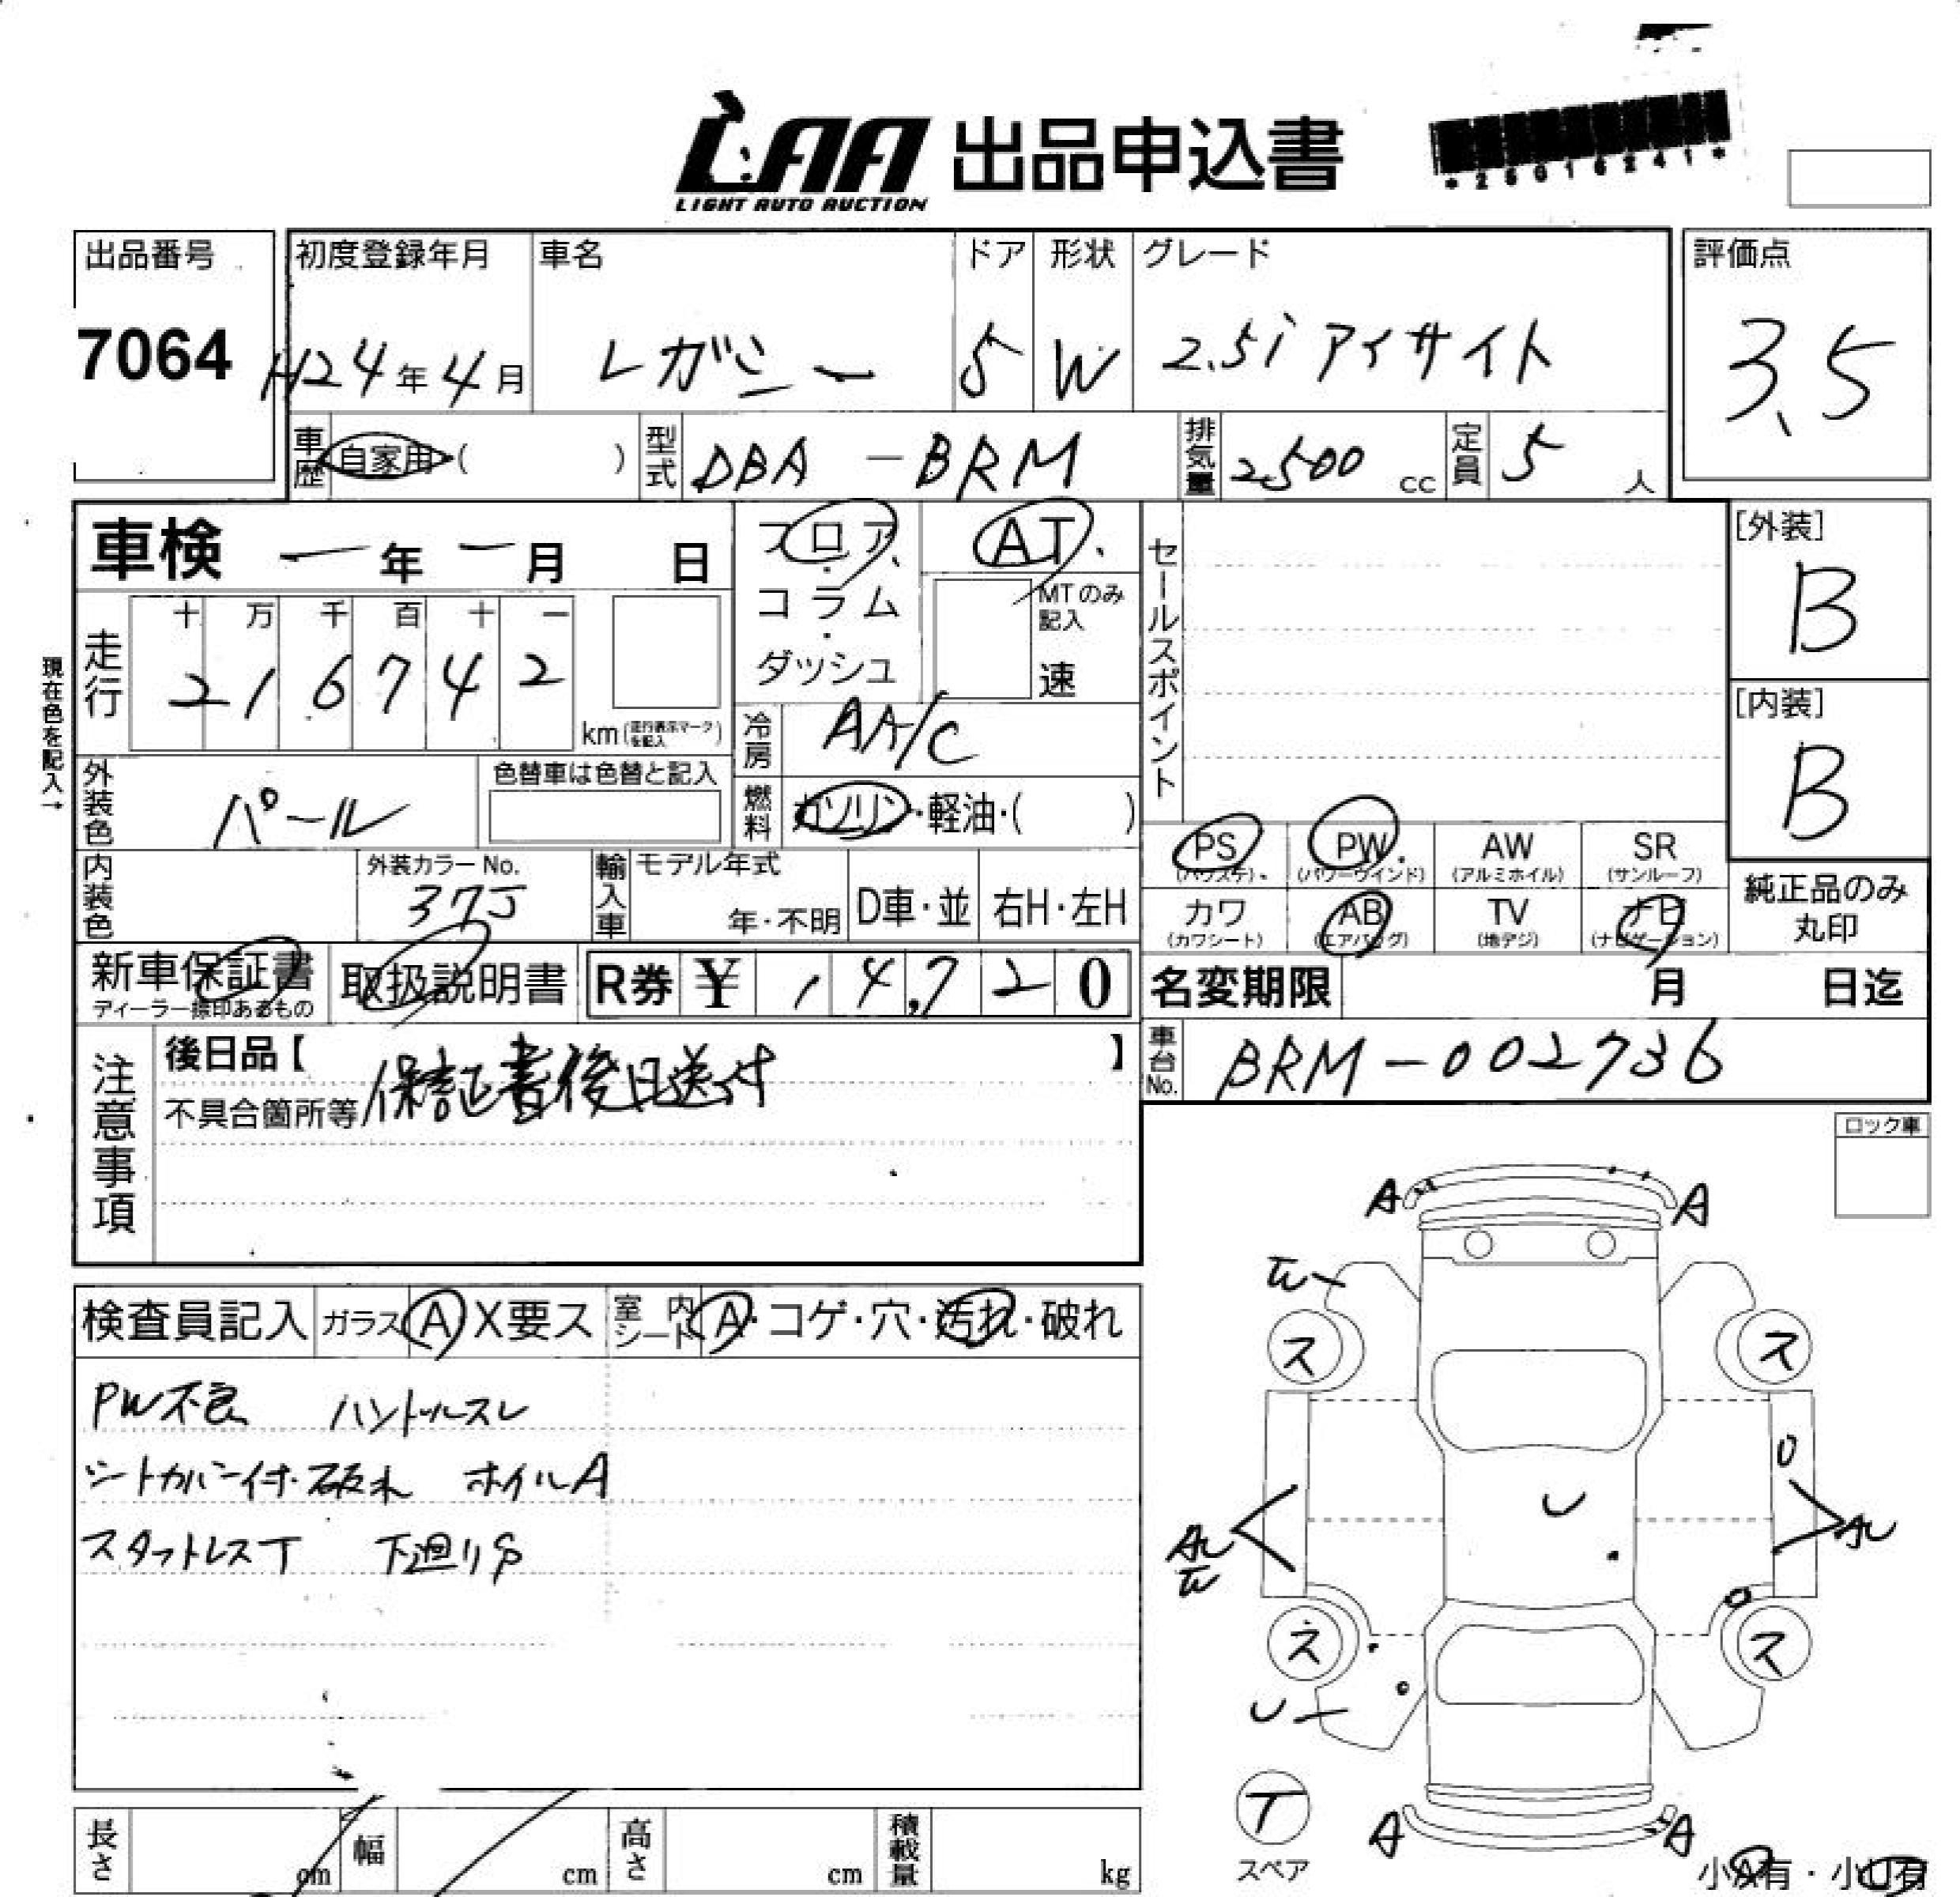 LAA 出品申込書
LIGHT AUTO AUCTION
*25016241*
出品番号
7064
初度登録年月
H24年4月
車名
レガシー
ドア
5
形状
W
グレード
2.5i アイサイト
評価点
3.5
車歴 自家用 ( )
型式 DBA-BRM
排気量 2,500 cc
定員 5 人
車検 ー年ー月 日
フロア・
コラム・
ダッシュ
AT、
MTのみ記入
速
セールスポイント
[外装]
B
[内装]
B
現在色を記入→
走行
十 万 千 百 十 一
2 1 6 7 4 2
km (走行表示マークを記入)
冷房 AA/C
外装色 パール
色替車は色替と記入
燃料 ガソリン・軽油・( )
内装色
外装カラーNo.
37J
輸入車
モデル年式
年・不明
D車・並
右H・左H
PS (パワステ)
PW (パワーウインド)
AW (アルミホイル)
SR (サンルーフ)
カワ (カワシート)
AB (エアバッグ)
TV (地デジ)
ナビ (ナビゲーション)
純正品のみ
丸印
新車保証書
ディーラー捺印あるもの
取扱説明書
R券 ¥ 14,720
名変期限 月 日迄
注意事項
後日品【 】
不具合箇所等
保証書後日送付
車台No. BRM-002736
ロック車
検査員記入
ガラス A X要ス
室内シート A・コゲ・穴・汚れ・破れ
PW不良 ハンドルスレ
シートカバー付・破れ ホイルA
スタットレスT 下廻りS
A A
ス ス
U
ス ス
T
スペア
A A
小A有・小U有
長さ cm
幅 cm
高さ cm
積載量 kg